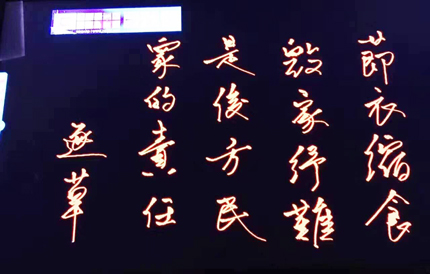 節衣縮食
毀家紓難
是後方民
眾的責任
草